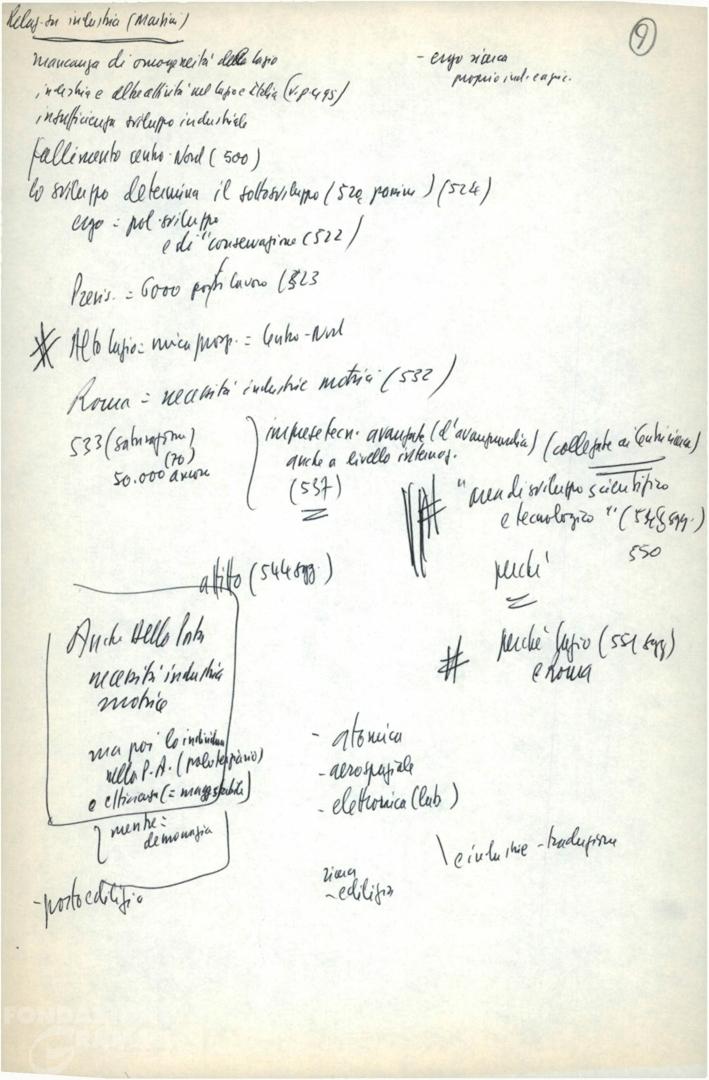 Relaz. su industria (Mastia)
9
mancanza di omogeneità delle Lazio
- ergo ricerca
industria e altre attività nel Lazio e Italia (v. p. 495)
insufficienza sviluppo industriale
fallimento centro-Nord (500)
lo sviluppo determina il sottosviluppo (520, passim) (524)
ergo = pol. sviluppo
e di "conservazione (522)
Previs. = 6000 posti lavoro (523
# Alto Lazio = unica prosp. = Centro-Nord
Roma = necessità industrie motrici (532)
533 (saturazione)
(70)
50.000 ancora
imprese tecn. avanzate (d'avanguardia) (collegate ai Centri ricerca)
anche a livello internaz.
(537)
# "area di sviluppo scientifico
e tecnologico" (
550
perché
(544 sgg.)
# perché Lazio (551 sgg)
e Roma
Anche Della Porta
necessità industria
motrice
ma poi lo individua
nella P.A. (polo terziario)
e efficienza (=
mentre =
- atomica
- aerospaziale
- elettronica (Lab)
\ e industrie - traduzione
ricerca
- edilizia